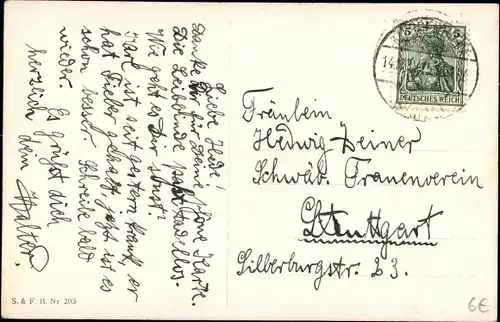 Liebe Hede!
Danke Dir für Deine schöne Karte.
Die Leibbinde paßt tadellos.
Wie geht es Dir sonst?
Karl ist seit gestern krank, er
hat Fieber gehabt jetzt ist es
schon besser. Schreibe bald
wieder. Es grüßt dich
herzlich dein Walter.
S. & F. B. Nr 203
5 5
DEUTSCHES REICH
14.
Fräulein
Hedwig Zeiner
Schwäb. Frauenverein
Stuttgart
Silberburgstr. 23.
6€